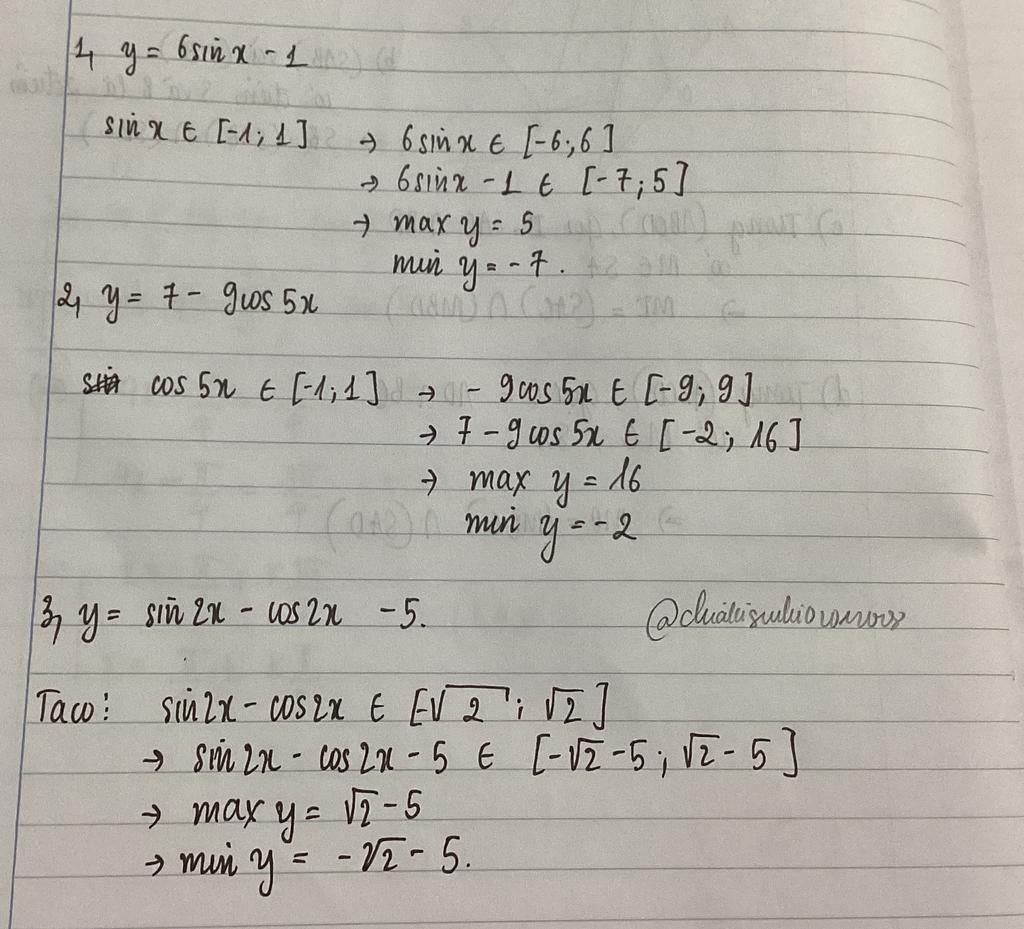 1, y = 6sin x - 1
sin x ∈ [-1; 1] → 6sin x ∈ [-6; 6]
→ 6sin x - 1 ∈ [-7; 5]
→ max y = 5
min y = -7.
2, y = 7 - 9cos 5x
cos 5x ∈ [-1; 1] → - 9cos 5x ∈ [-9; 9]
→ 7 - 9cos 5x ∈ [-2; 16]
→ max y = 16
min y = -2
3, y = sin 2x - cos 2x - 5.
Ta có: sin 2x - cos 2x ∈ [-√2; √2]
→ sin 2x - cos 2x - 5 ∈ [-√2 - 5; √2 - 5]
→ max y = √2 - 5
→ min y = -√2 - 5.